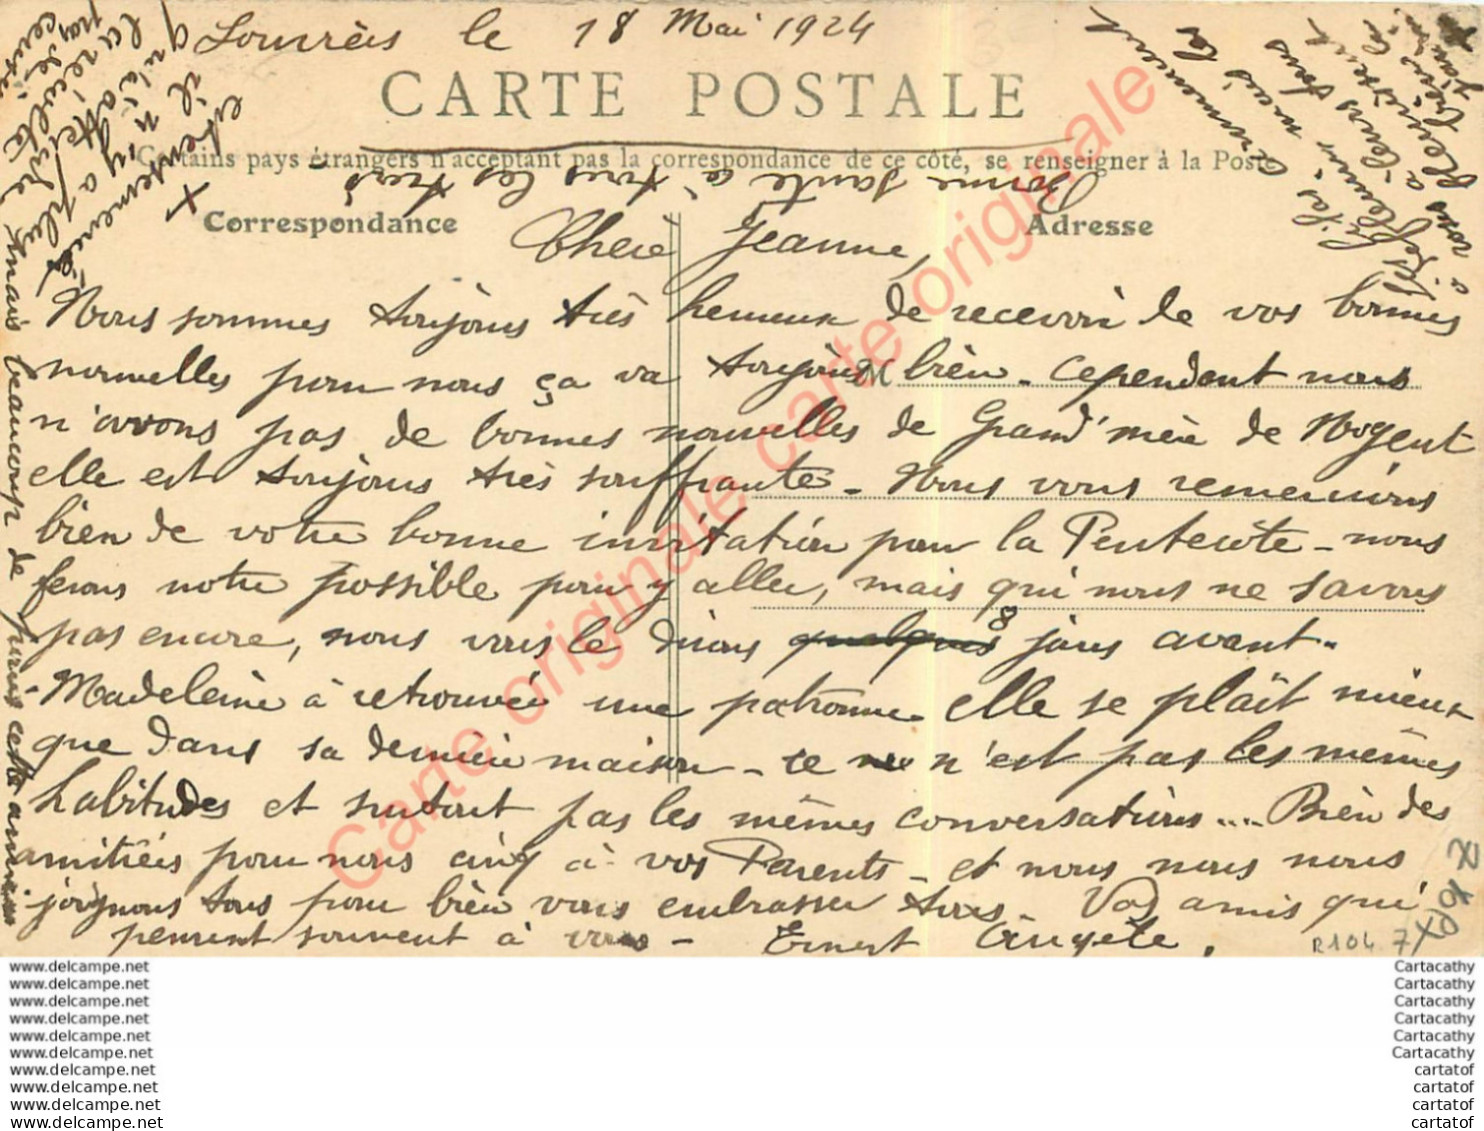 Louvrès le 18 Mai 1924
CARTE POSTALE
Certains pays étrangers n'acceptant pas la correspondance de ce côté, se renseigner à la Poste
Bonne santé à tous les trois
Correspondance
Adresse
Chère Jeanne,
Nous sommes toujours très heureux de recevoir de vos bonnes
nouvelles pour nous ça va toujours bien. Cependant nous
n'avons pas de bonnes nouvelles de Grand'mère de Nogent
elle est toujours très souffrante. Nous vous remercions
bien de votre bonne invitation pour la Pentecôte - nous
ferons notre possible pour y aller, mais qui nous ne savons
pas encore, nous vous le dirons quelques 8 jours avant.
Madeleine à retrouvée une patronne elle se plaît mieux
que dans sa dernière maison - ce n'est pas les mêmes
habitudes et surtout pas les mêmes conversations.... Bien des
amitiées pour nous cinq à vos Parents - et nous nous nous
joignons tous pour bien vous embrasser tous. Vos amis qui
pensent souvent à vous - Ernest Angèle.
mais beaucoup de prunes cette année
X
et heureusement
il n'y a plus
qu'à attendre
la récolte
pas de
cerises
Les lilas commencent
à fleurir mais les
à leurs tous
fleurissent
à vous
R104
Carte originale carte originale carte originale
www.delcampe.net
www.delcampe.net
www.delcampe.net
www.delcampe.net
www.delcampe.net
www.delcampe.net
www.delcampe.net
www.delcampe.net
www.delcampe.net
www.delcampe.net
Cartacathy
Cartacathy
Cartacathy
Cartacathy
Cartacathy
Cartacathy
cartatof
cartatof
cartatof
cartatof